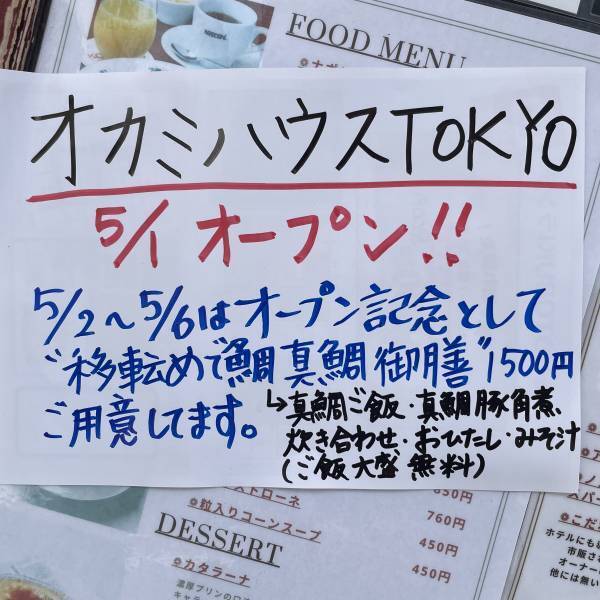 FOOD MENU
オカミハウスTOKYO
5/1 オープン!!
5/2～5/6はオープン記念として
"移転めで鯛真鯛御膳"1500円
ご用意してます。
↳真鯛ご飯・真鯛豚角煮、
炊き合わせ・おひたし・みそ汁
(ご飯大盛無料)
ストローネ
850円
粒入りコーンスープ
760円
450円
DESSERT
カタラーナ
450円
濃厚プリンの
ホテルにも
市販さ
オーナー
他には無い